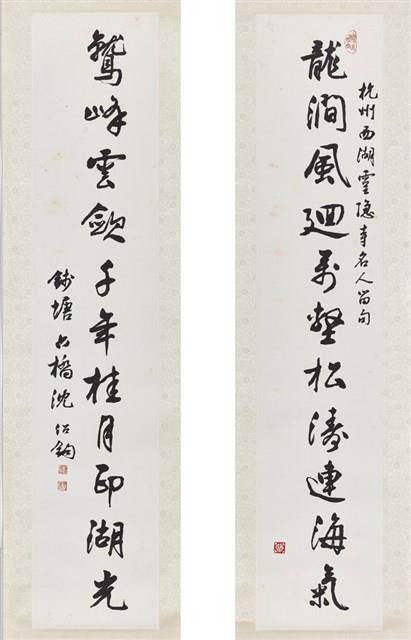 杭州西湖靈隱寺名人留句
龍澗風廻萬壑松濤連海氣
鷲峰雲歛千年桂月印湖光
錢塘 橋沈